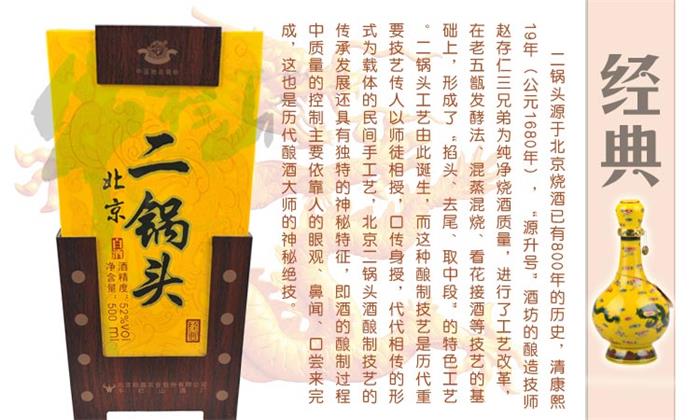 经典
二锅头源于北京烧酒已有800年的历史，清康熙
19年（公元1680年），“源升号”酒坊的酿造技师
赵存仁三兄弟为纯净烧酒质量，进行了工艺改革
在老五甑发酵法、混蒸混烧、看花接酒等技艺的基
础上，形成了“掐头、去尾、取中段”的特色工艺
。二锅头工艺由此诞生，而这种酿制技艺是历代重
要技艺传人以师徒相授，口传身授，代代相传的形
式为载体的民间手工艺，北京二锅头酒酿制技艺的
传承发展还具有独特的神秘特征，即酒的酿制过程
中质量的控制主要依靠人的眼观、鼻闻、口尝来完
成，这也是历代酿酒大师的神秘绝技。
二锅头
北京
白酒
酒精度：52%VOL
净含量：500 ml